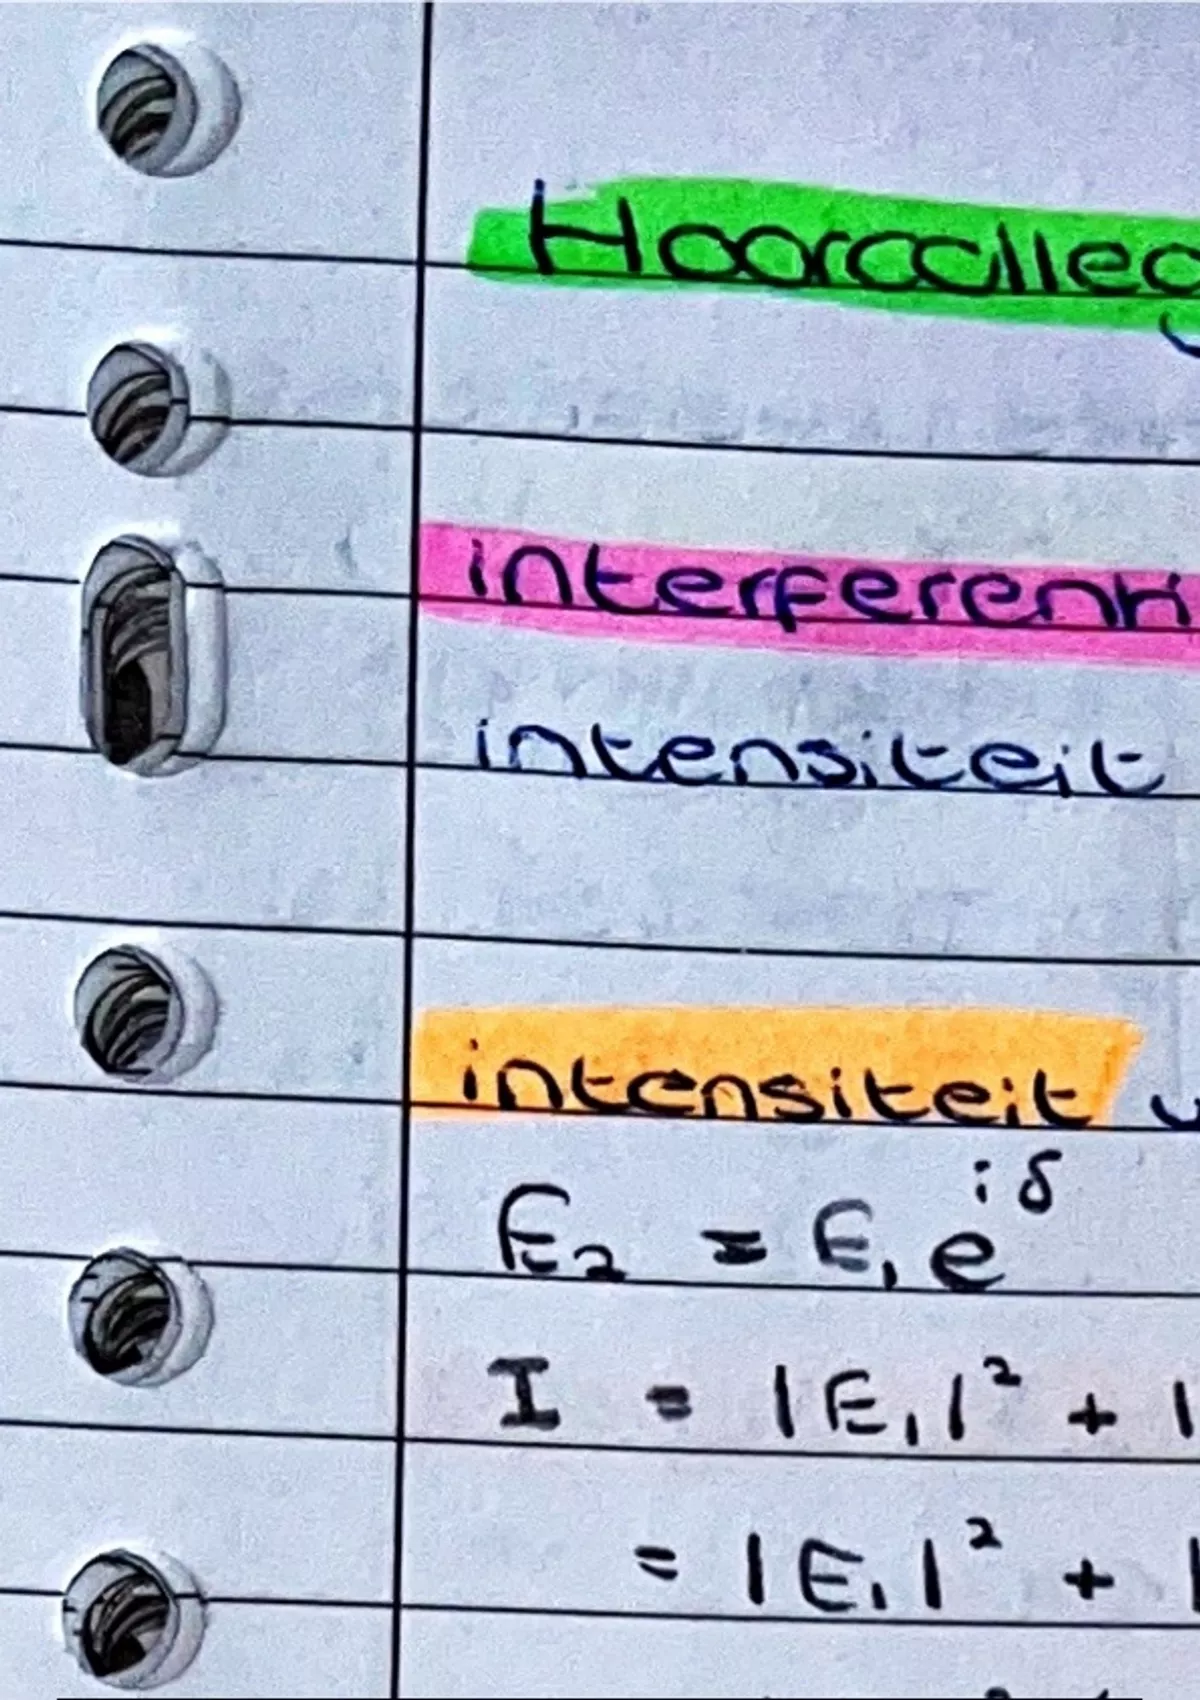 Hoorcolleg
interferenti
intensiteit
intensiteit
E₂ = E₁ e^{iδ}
I = |E₁|² + |
= |E₁|² + |